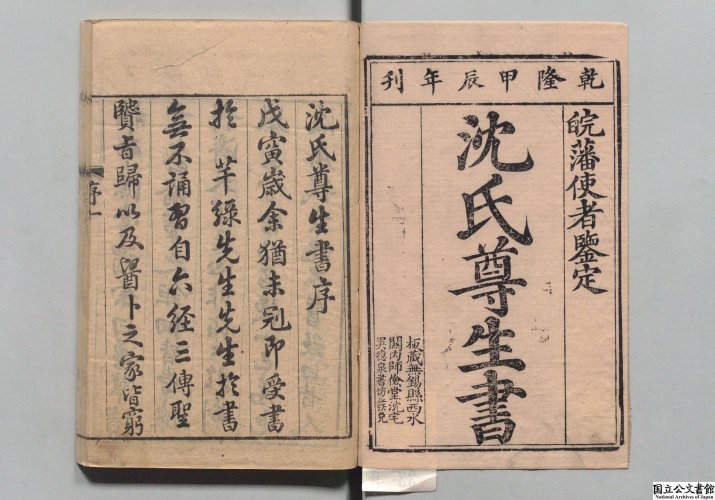 乾隆甲辰年刊
皖藩使者鑒定
沈氏尊生書
板藏無錫縣西水
關內師儉堂沈宅
異蹤泉書坊發兌
沈氏尊生書序
戊寅歳余猶未冠即受書
於芊綠先生先生於書
無不誦習自六经三傳聖
賢旨歸以及醫卜之家皆窮
序一
国立公文書館
National Archives of Japan